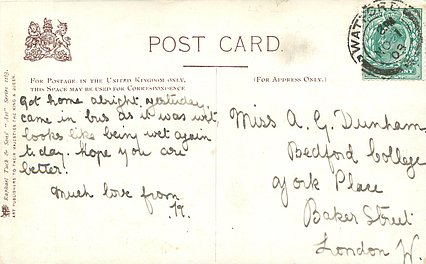 POST CARD.
FOR POSTAGE IN THE UNITED KINGDOM ONLY,
THIS SPACE MAY BE USED FOR CORRESPONDENCE
(FOR ADDRESS ONLY.)
Got home alright, yesterday,
came in bus as it was wet
Looks like being wet again
today. Hope you are
better.
Much love from
Miss A. G. Dunham,
Bedford College
York Place
Baker Street
London W.
Raphael Tuck & Sons' "Art" Series
ART PUBLISHERS TO THEIR MAJESTIES THE KING & QUEEN.
WATFORD